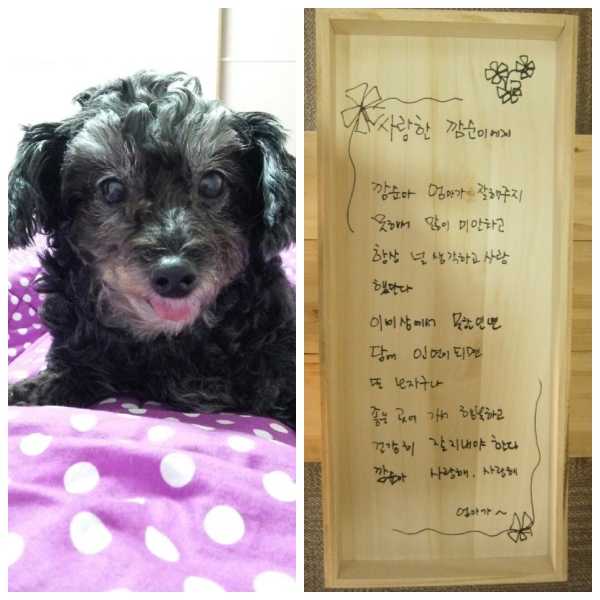 사랑한 깜순이에게
깜순아 엄마가 잘해주지
못해서 많이 미안하고
항상 널 생각하고 사랑
했단다
이비상에서 못한인연
담에 인연이되면
또 보자구나
좋은 곳에 가서 행복하고
건강히 잘지내야 한다
깜순아 사랑해. 사랑해
엄마가~